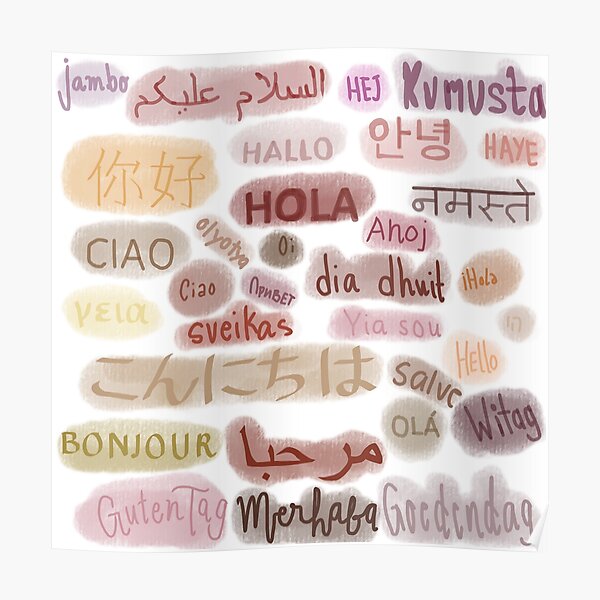 jambo
السلام عليكم
HEJ
Kumusta
你好
HALLO
안녕
HAYE
HOLA
नमस्ते
CIAO
olyotya
Oi
Ahoj
Ciao
Привет
dia dhuit
¡Hola
γεια
sveikas
Yia sou
Hello
こんにちは
salve
OLÁ
Witag
BONJOUR
مرحبا
Guten Tag
Merhaba
Goedendag